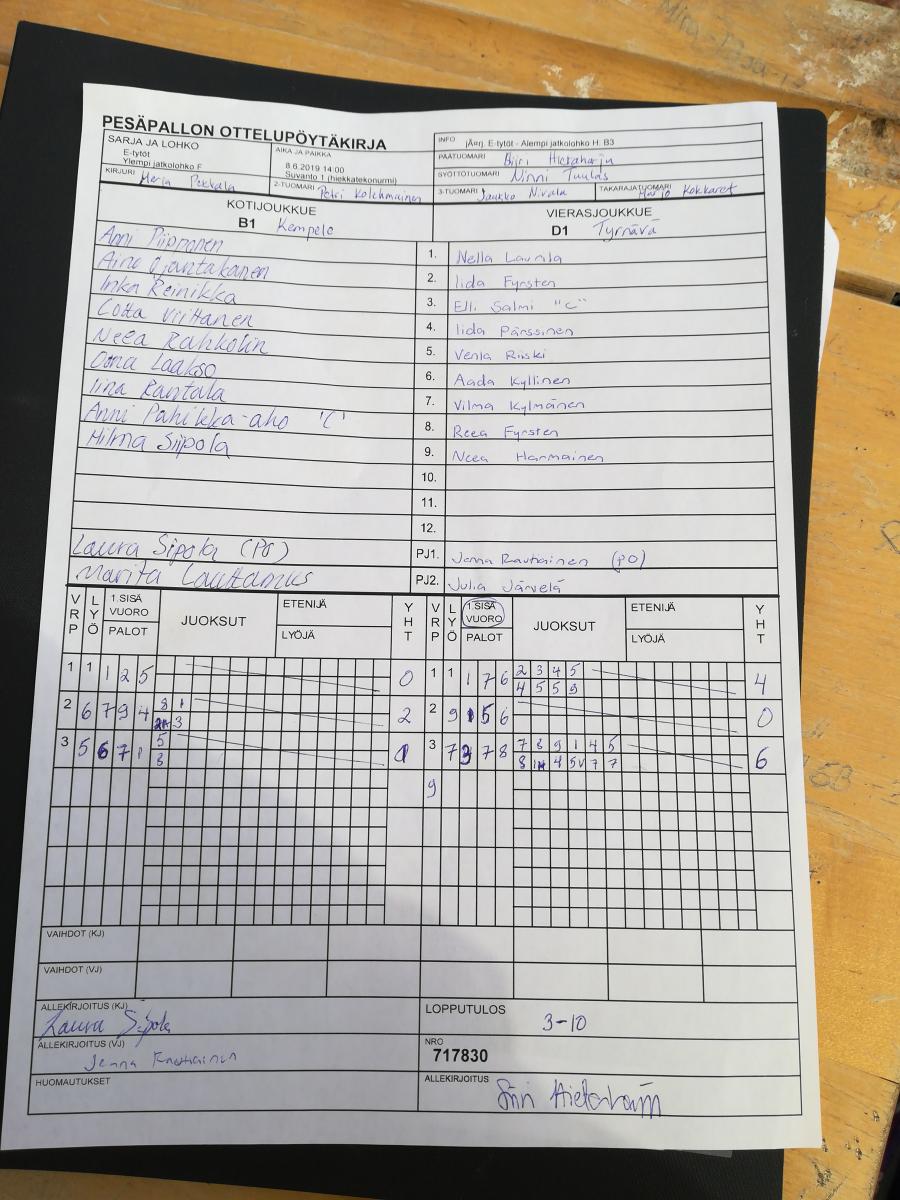 PESÄPALLON OTTELUPÖYTÄKIRJA
SARJA JA LOHKO
E-tytöt
Ylempi jatkolohko F
AIKA JA PAIKKA
8.6.2019 14:00
Suvanto 1 (hiekkatekonurmi)
INFO jÄrj. E-tytöt - Alempi jatkolohko H: B3
PÄÄTUOMARI
SYÖTTÖTUOMARI Ninni Tuulas
KIRJURI Merja Pekkala
2-TUOMARI Petri Kolehmainen
3-TUOMARI Jaukko Nivala
TAKARAJATUOMARI Marjo
KOTIJOUKKUE
B1 Kempele
VIERASJOUKKUE
D1 Tyrnävä
Anni Piipponen 1. Nella Laurila
Aino Ojantakanen 2. Iida Fyrsten
Inka Reinikka 3. Elli Salmi "C"
Lotta Virttanen 4. Iida Pärssinen
Neea Rahkolin 5. Venla Riski
Oona Laakso 6. Aada Kyllinen
Iina Rantala 7. Vilma Kylmänen
Anni Pahikka-aho "C" 8. Reea Fyrsten
Hilma Siipola 9. Neea Harmainen
10.
11.
12.
Laura Sipola (PS) PJ1. Jenna Rautiainen (PO)
Marita Lauttamus PJ2. Julia Järvelä
VRP LYÖ 1.SISÄ VUORO PALOT JUOKSUT ETENIJÄ LYÖJÄ YHT VRP LYÖ 1.SISÄ VUORO PALOT JUOKSUT ETENIJÄ LYÖJÄ YHT
1 1 1 2 5 0 1 1 1 7 6 2 3 4 5 4
4 5 5 9
2 6 7 9 4 8 1 2 2 9 1 5 6 0
3
3 5 6 7 1 5 1 3 7 3 7 8 7 8 9 1 4 5 6
8 8 4 5 7 7
9
VAIHDOT (KJ)
VAIHDOT (VJ)
ALLEKIRJOITUS (KJ)
Laura Sipola
LOPPUTULOS 3-10
ALLEKIRJOITUS (VJ)
Jenna Rautiainen
NRO
717830
HUOMAUTUKSET
ALLEKIRJOITUS